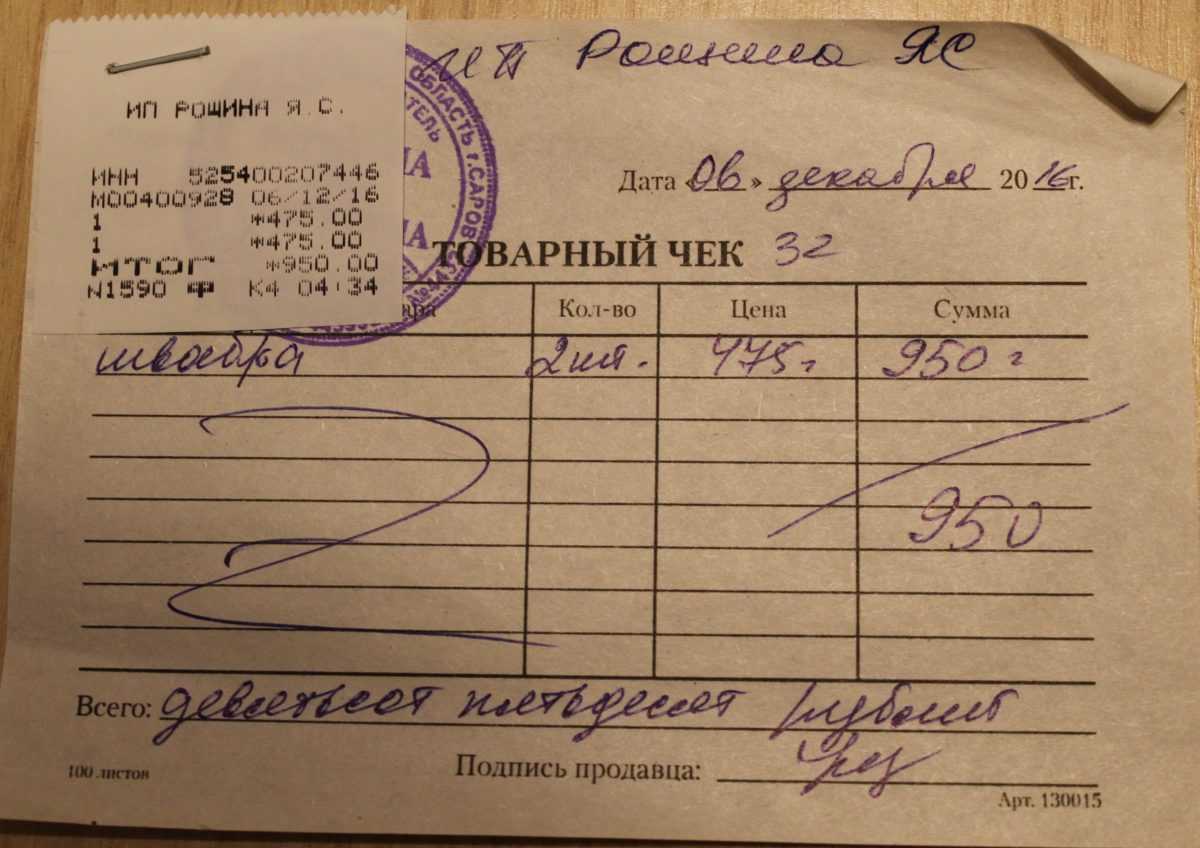 ИП Рощина ЯС
ИП РОЩИНА Я.С.
ИНН 525400207446
М00400928 06/12/16
1 *475.00
1 *475.00
ИТОГ *950.00
N1590 Ф К4 04:34
ОБЛАСТЬ г.САРОВ
Дата «06» декабря 2016г.
ТОВАРНЫЙ ЧЕК 32
Кол-во Цена Сумма
швабра 2шт. 475= 950=
950
Всего: девятьсот пятьдесят рублей
Подпись продавца:
100 листов
Арт. 130015